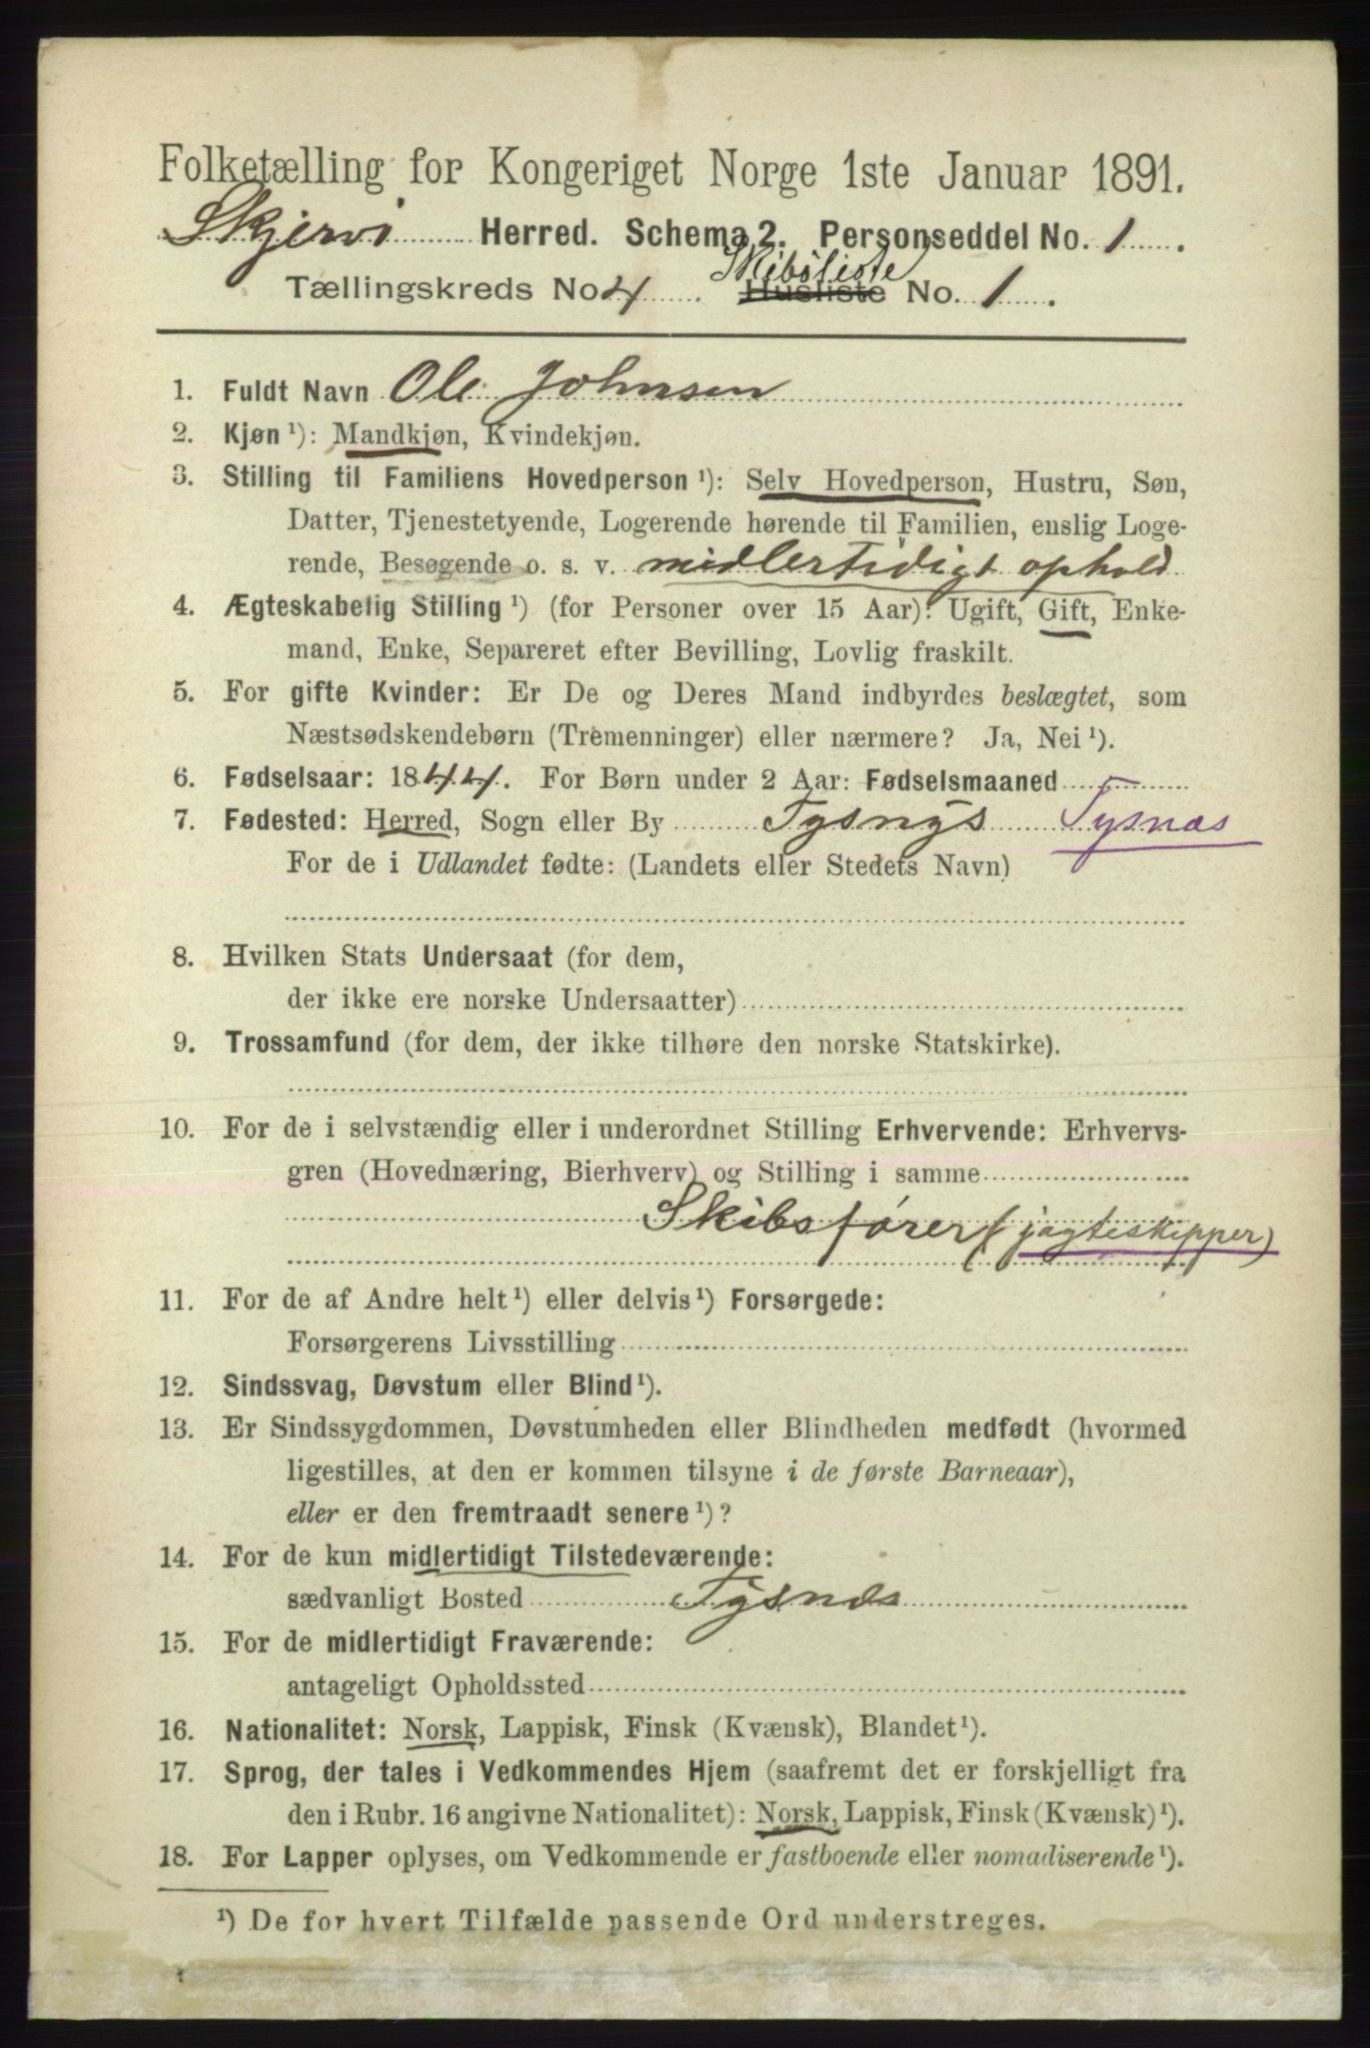 Folketælling for Kongeriget Norge 1ste Januar 1891.
Skjervi Herred. Schema 2. Personseddel No. 1.
Skibsliste
Tællingskreds No 4. Husliste No. 1.
1. Fuldt Navn Ole Johnsen
2. Kjøn ¹): Mandkjøn, Kvindekjøn.
3. Stilling til Familiens Hovedperson ¹): Selv Hovedperson, Hustru, Søn,
Datter, Tjenestetyende, Logerende hørende til Familien, enslig Loge-
rende, Besøgende o. s. v. midlertidigt ophold
4. Ægteskabelig Stilling ¹) (for Personer over 15 Aar): Ugift, Gift, Enke-
mand, Enke, Separeret efter Bevilling, Lovlig fraskilt.
5. For gifte Kvinder: Er De og Deres Mand indbyrdes beslægtet, som
Næstsødskendebørn (Tremenninger) eller nærmere? Ja, Nei ¹).
6. Fødselsaar: 1844. For Børn under 2 Aar: Fødselsmaaned
7. Fødested: Herred, Sogn eller By Tysnys Tysnæs
For de i Udlandet fødte: (Landets eller Stedets Navn)
8. Hvilken Stats Undersaat (for dem,
der ikke ere norske Undersaatter)
9. Trossamfund (for dem, der ikke tilhøre den norske Statskirke).
10. For de i selvstændig eller i underordnet Stilling Erhvervende: Erhvervs-
gren (Hovednæring, Bierhverv) og Stilling i samme
Skibsfører (jagteskipper)
11. For de af Andre helt ¹) eller delvis ¹) Forsørgede:
Forsørgerens Livsstilling
12. Sindssvag, Døvstum eller Blind ¹).
13. Er Sindssygdommen, Døvstumheden eller Blindheden medfødt (hvormed
ligestilles, at den er kommen tilsyne i de første Barneaar),
eller er den fremtraadt senere ¹)?
14. For de kun midlertidigt Tilstedeværende:
sædvanligt Bosted Tysnæs
15. For de midlertidigt Fraværende:
antageligt Opholdssted
16. Nationalitet: Norsk, Lappisk, Finsk (Kvænsk), Blandet ¹).
17. Sprog, der tales i Vedkommendes Hjem (saafremt det er forskjelligt fra
den i Rubr. 16 angivne Nationalitet): Norsk, Lappisk, Finsk (Kvænsk) ¹).
18. For Lapper oplyses, om Vedkommende er fastboende eller nomadiserende ¹).
¹) De for hvert Tilfælde passende Ord understreges.